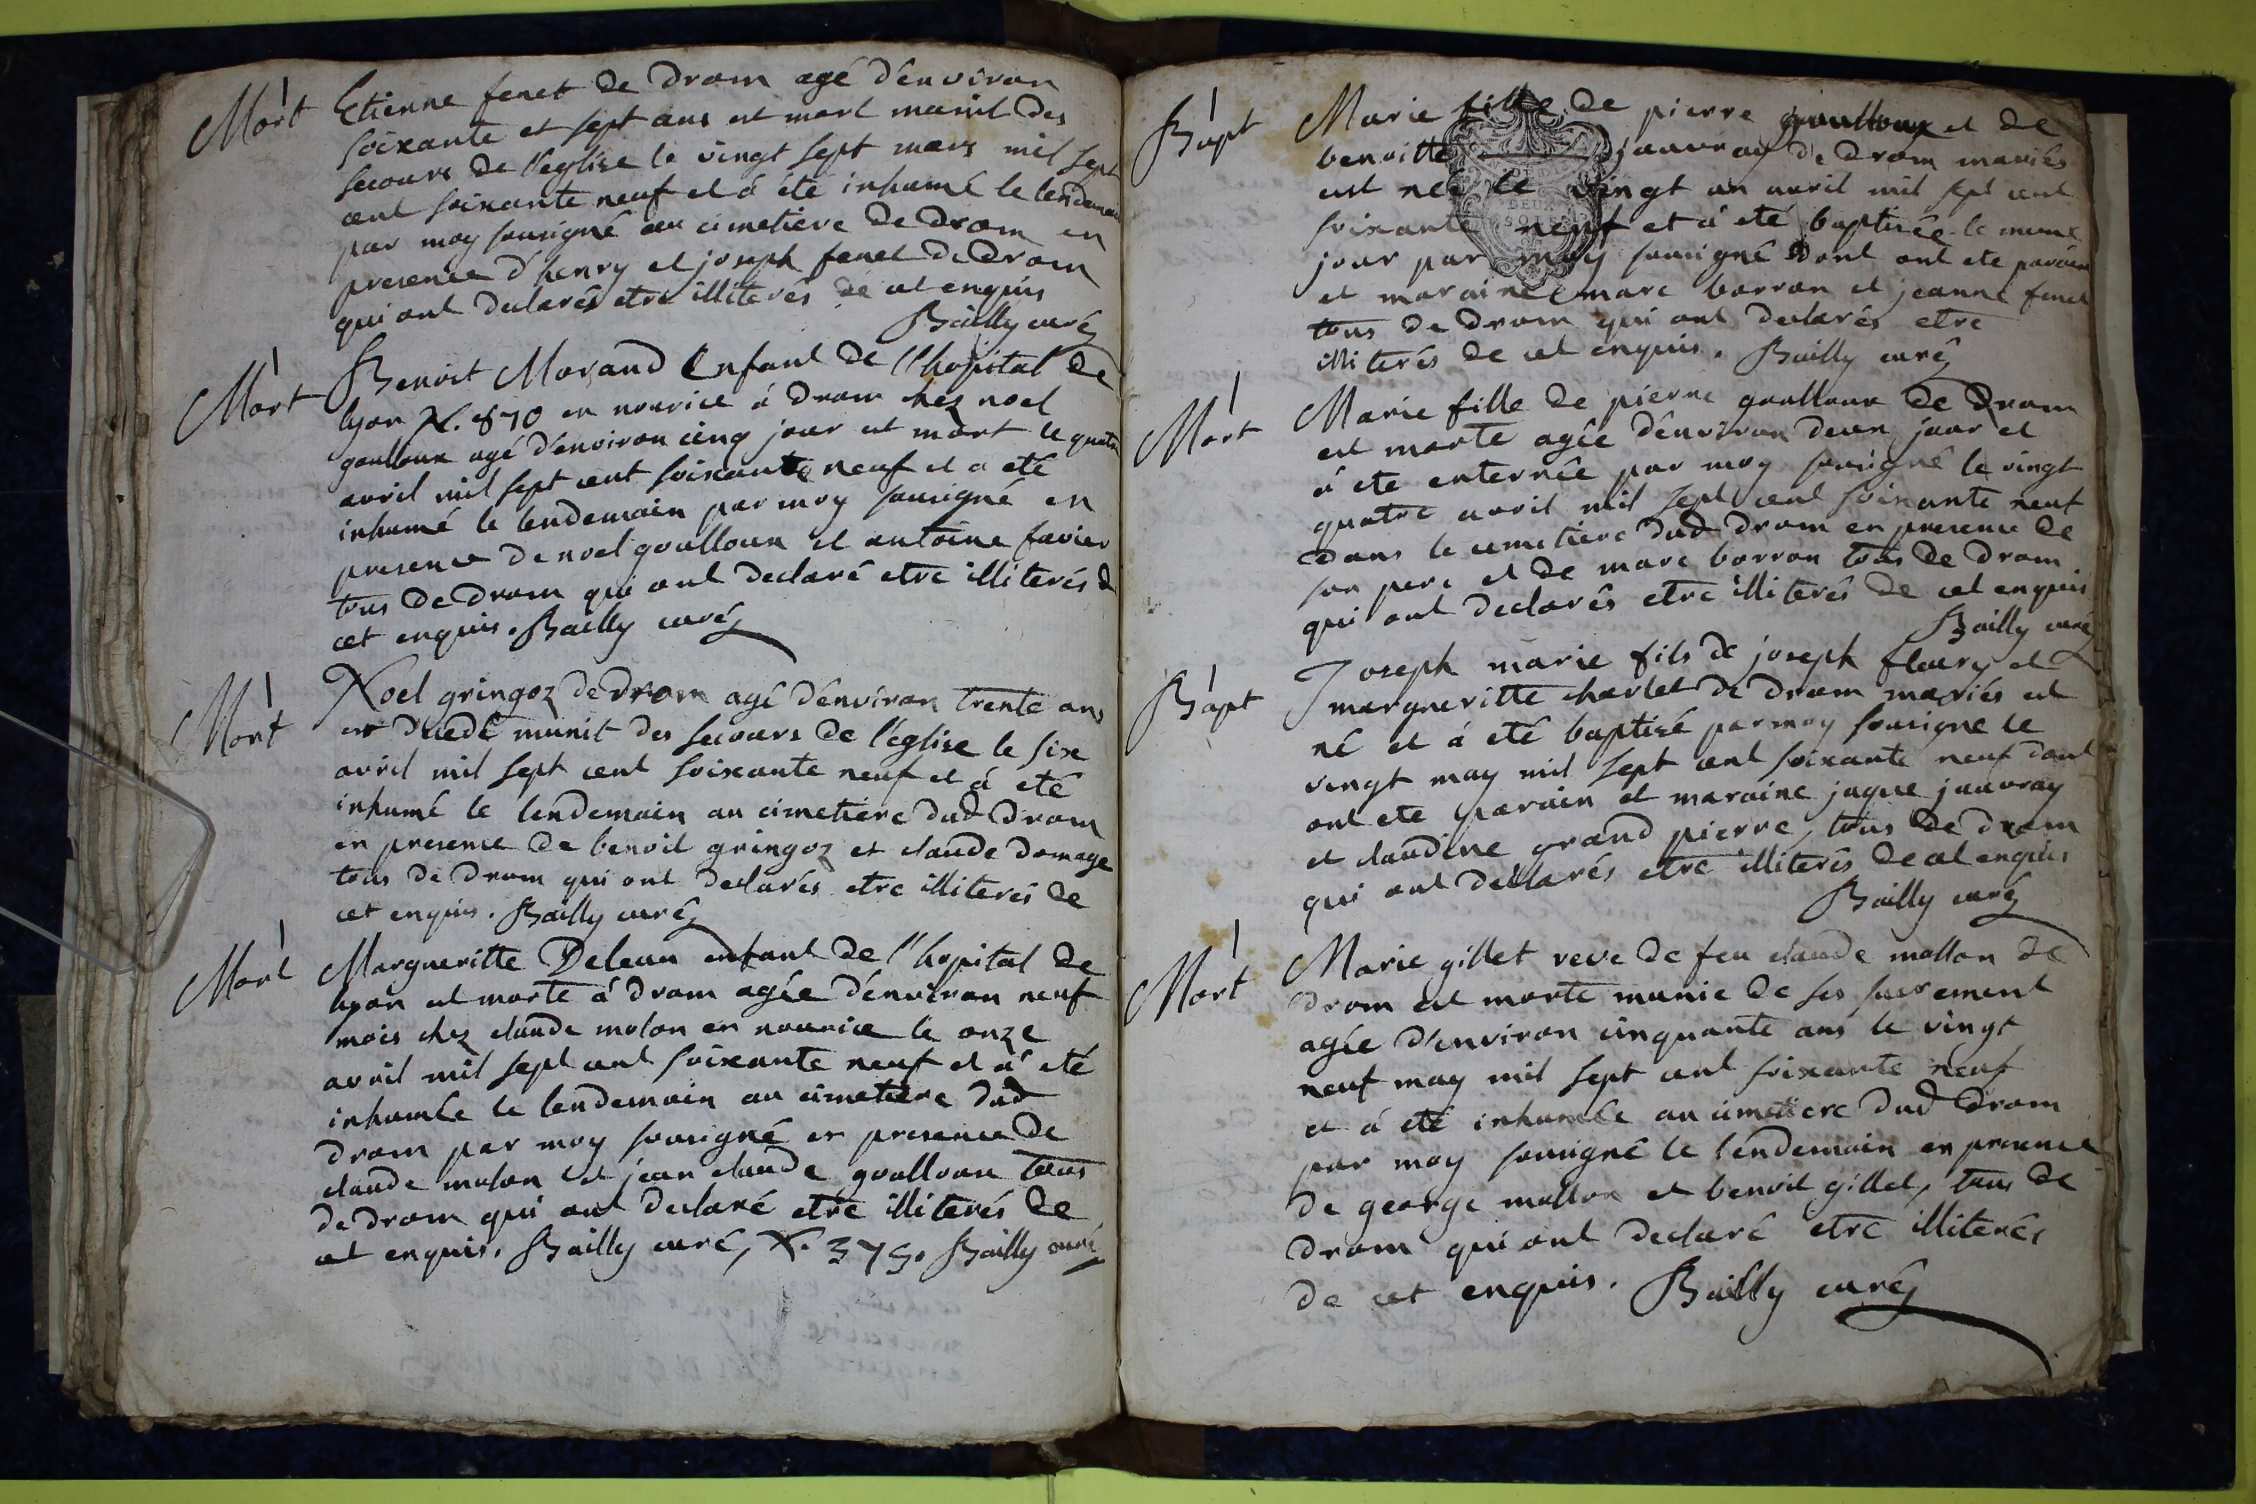 Mort
Etienne fenet de Drom agé d'environ
soixante et sept ans est mort munit des
secours de l'eglise le vingt sept mars mil sept
cent soixante neuf et á été inhumé le lendemain
par moy sousigné au cimetiere de Drom en
presence d'henry et joseph fenet de Drom
qui ont declarés etre illiterés de cet enquis
Bailly curé
Mort
Benoit Morand Enfant de l'hopital de
lyon N. 870 en nourice á Drom chez noel
goulloux agé d'environ cinq jour est mort le quatre
avril mil sept cent soixante neuf et a eté
inhumé le lendemain par moy sousigné en
presence de noel goulloux et antoine favier
tous de Drom qui ont declaré etre illiterés de
cet enquis. Bailly curé
Mort
Noel gringoz de Drom agé d'environ trente ans
est decedé munit des secours de l'église le six
avril mil sept cent soixante neuf et á eté
inhumé le lendemain au cimetiere dud Drom
en presence de benoit gringoz et claude domage
tous de Drom qui ont declarés etre illiterés de
cet enquis. Bailly curé
Mort
Margueritte Deleau enfant de l'hopital de
lyon est morte á Drom agée d'environ neuf
mois chez claude molon en nourrice le onze
avril mil sept cent soixante neuf et a' eté
inhumée le lendemain au cimetiere dud
Drom par moy sousigné en presence de
claude molon et jean claude goulloux tous
de Drom qui ont declaré etre illiterés de
cet enquis. Bailly curé, N. 375. Bailly curé
Bapt
Marie fille de pierre goulloux et de
benoitte jauvray de Drom mariés
est neé le vingt un avril mil sept cent
soixante neuf et a' eté baptisée le meme
jour par moy sousigné Dont ont ete parain
et maraine marc borron et jeanne fenet
tous de Drom qui ont declarés etre
illiterés de cet enquis. Bailly curé
Mort
Marie fille de pierre goulloux de Drom
est morte agée d'environ deux jour et
á eté enterrée par moy sousigné le vingt
quatre avril mil sept cent soixante neuf
dans le cemetiere dud Drom en presence de
son pere et de marc borron tous de Drom
qui ont declarés etre illiterés de cet enquis
Bailly curé
Bapt
Joseph marie fils de joseph fleury et
margueritte charlet de Drom mariés est
né et á eté baptisé par moy sousigne le
vingt may mil sept cent soixante neuf dont
ont ete parain et maraine jaque jauvray
et claudine grand pierre, tous de Drom
qui ont declarés etre illiterés de cet enquis
Bailly curé
Mort
Marie gillet veve de feu claude mollon de
Drom est morte munie de ses sacrement
agée d'environ cinquante ans le vingt
neuf may mil sept cent soixante neuf
et á eté inhumée au cimetiere dud Drom
par moy sousigné le lendemain en presence
de george mollon et benoit gillet, tous de
Drom qui ont declaré etre illiterés
de cet enquis. Bailly curé